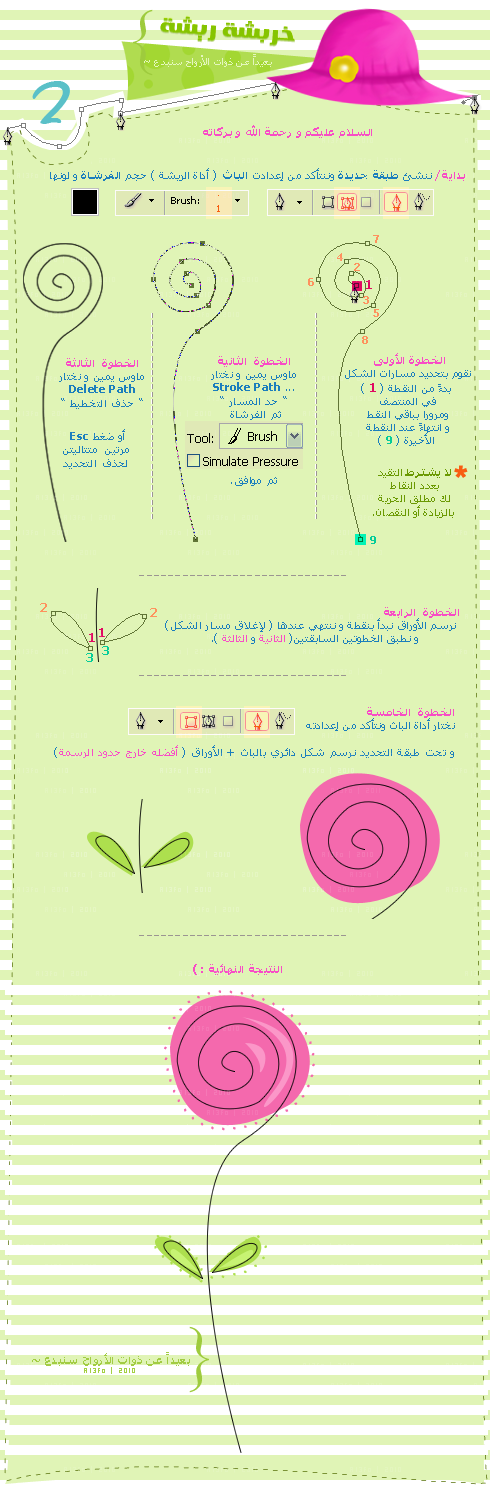 خربشة ريشة
بعيداً عن ذوات الأرواح سنبدع ~
2
السلام عليكم و رحمة الله و بركاته
بداية/ ننشئ طبقة جديدة ونتأكد من إعدادت الباث ( أداة الريشة ) حجم الفرشاة و لونها
Brush: 1
الخطوة الأولى
نقوم بتحديد مسارات الشكل
بدءً من النقطة ( 1 )
في المنتصف
ومرورا بباقي النقط
و انتهاءً عند النقطة
الأخيرة ( 9 )
* لا يشترط التقيد
بعدد النقاط
لك مطلق الحرية
بالزيادة أو النقصان.
1
2
3
4
5
6
7
8
9
الخطوة الثانية
ماوس يمين و نختار
Stroke Path ...
" حد المسار "
ثم الفرشاة
Tool: Brush
Simulate Pressure
ثم موافق.
الخطوة الثالثة
ماوس يمين و نختار
Delete Path
" حذف التخطيط "
أو ضغط Esc
مرتين متتاليتين
لحذف التحديد
الخطوة الرابعة
نرسم الأوراق نبدأ بنقطة و ننتهي عندها ( لإغلاق مسار الشكل )
و نطبق الخطوتين السابقتين( الثانية و الثالثة ).
2
1
3
1
3
2
الخطوة الخامسة
نختار أداة الباث ونتأكد من إعدادته
و تحت طبقة التحديد نرسم شكل دائري بالباث + الأوراق ( أفضله خارج حدود الرسمة)
النتيجة النهائية : )
بعيداً عن ذوات الأرواح سنبدع ~